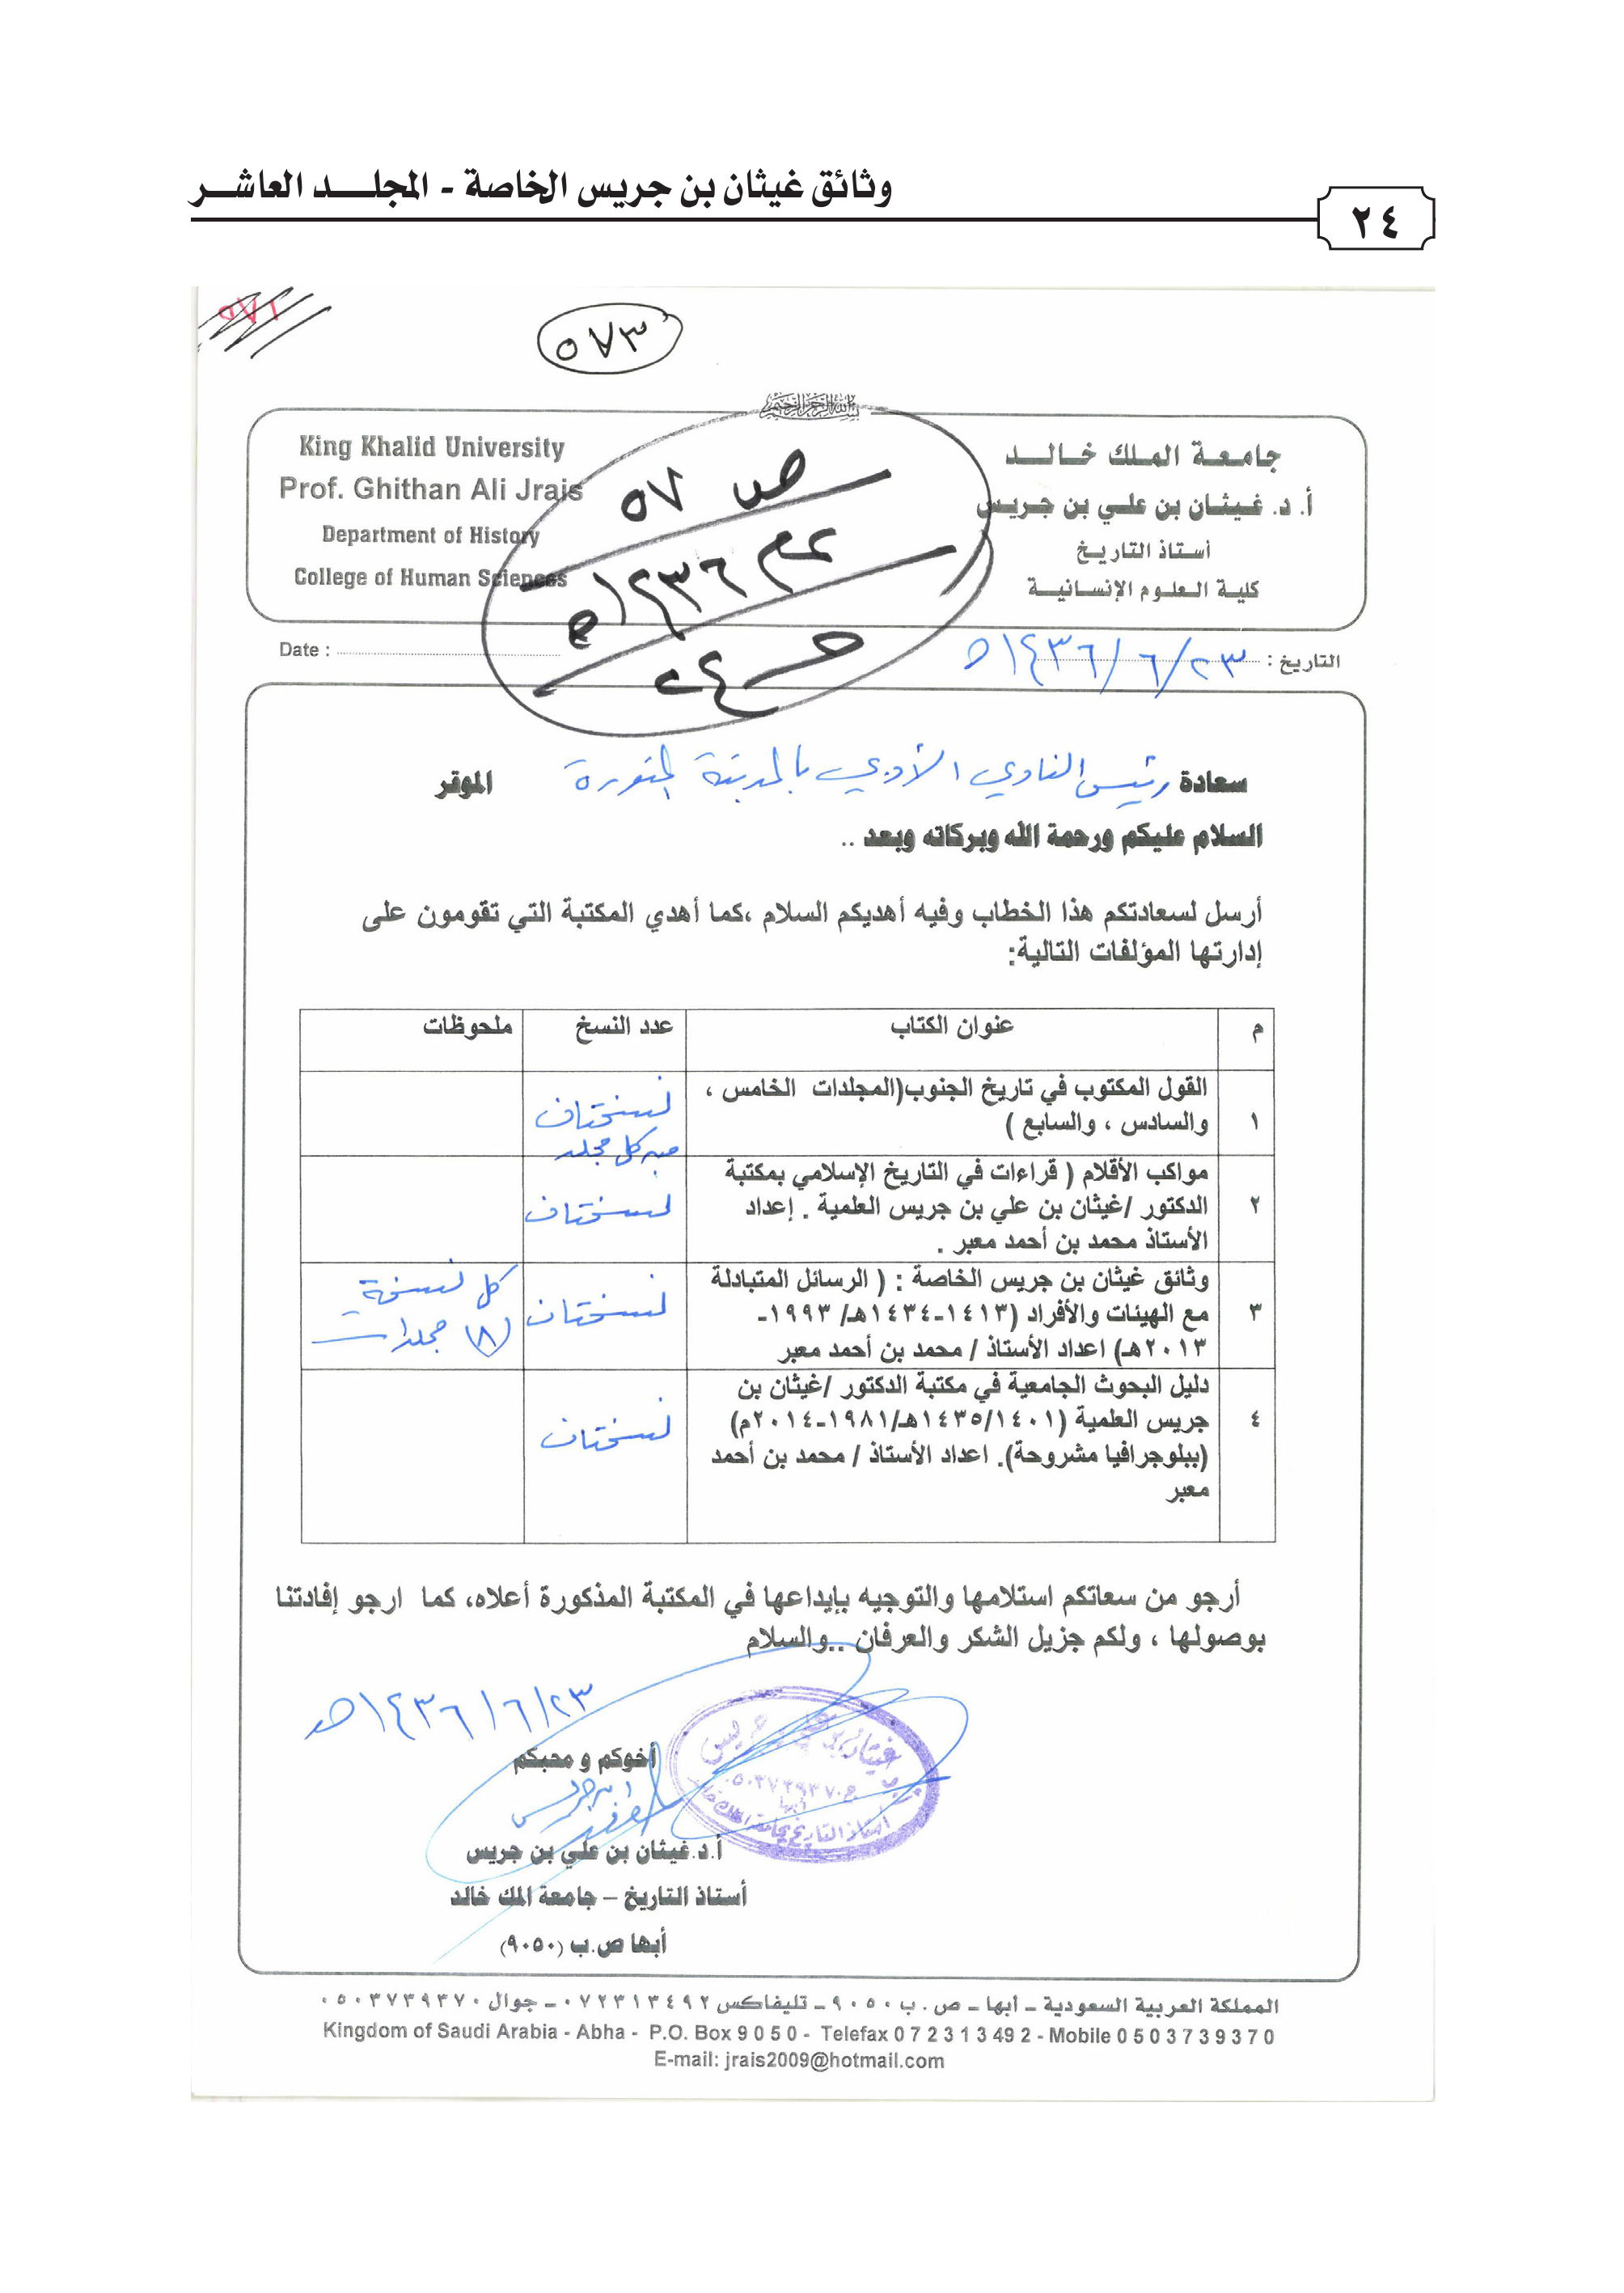 وثائق غيثان بن جريس الخاصة - المجلـــد العاشـــر
٢٤
٥٧١
٥٧٣
بسم الله الرحمن الرحيم
جامعة الملك خالد
أ. د. غيثان بن علي بن جريس
أستاذ التاريخ
كلية العلوم الإنسانية
King Khalid University
Prof. Ghithan Ali Jrais
Department of History
College of Human Sciences
ص ٥٧
١٤٣٦هـ
التاريخ : ٢٣/٦/١٤٣٦هـ
Date :
سعادة رئيس النادي الأدبي بالمدينة المنورة الموقر
السلام عليكم ورحمة الله وبركاته وبعد ..
أرسل لسعادتكم هذا الخطاب وفيه أهديكم السلام ،كما أهدي المكتبة التي تقومون على
إدارتها المؤلفات التالية:
م عنوان الكتاب عدد النسخ ملحوظات
١ القول المكتوب في تاريخ الجنوب(المجلدات الخامس ،
والسادس ، والسابع ) نسختان
من كل مجلد
٢ مواكب الأقلام ( قراءات في التاريخ الإسلامي بمكتبة
الدكتور /غيثان بن علي بن جريس العلمية . إعداد
الأستاذ محمد بن أحمد معبر . نسختان
٣ وثائق غيثان بن جريس الخاصة : ( الرسائل المتبادلة
مع الهيئات والأفراد (١٤١٣-١٤٣٤هـ/ ١٩٩٣-
٢٠١٣هـ) اعداد الأستاذ / محمد بن أحمد معبر نسختان كل نسخة
(٨) مجلدات
٤ دليل البحوث الجامعية في مكتبة الدكتور /غيثان بن
جريس العلمية (١٤٠١/١٤٣٥هـ/١٩٨١-٢٠١٤م)
(ببلوجرافيا مشروحة). اعداد الأستاذ / محمد بن أحمد
معبر نسختان
أرجو من سعاتكم استلامها والتوجيه بإيداعها في المكتبة المذكورة أعلاه، كما ارجو إفادتنا
بوصولها ، ولكم جزيل الشكر والعرفان ..والسلام
٢٣/٦/١٤٣٦هـ
أخوكم و محبكم
غيثان بن علي بن جريس
ج/٠٥٠٣٧٣٩٣٧٠
أبها
أستاذ التاريخ بجامعة الملك خالد
أ.د.غيثان بن علي بن جريس
أستاذ التاريخ – جامعة المك خالد
أبها ص.ب (٩٠٥٠)
المملكة العربية السعودية ـ أبها ـ ص . ب ٩٠٥٠ ـ تليفاكس ٠٧٢٣١٣٤٩٢ ـ جوال ٠٥٠٣٧٣٩٣٧٠
Kingdom of Saudi Arabia - Abha - P.O. Box 9 0 5 0 - Telefax 0 7 2 3 1 3 49 2 - Mobile 0 5 0 3 7 3 9 3 7 0
E-mail: jrais2009@hotmail.com